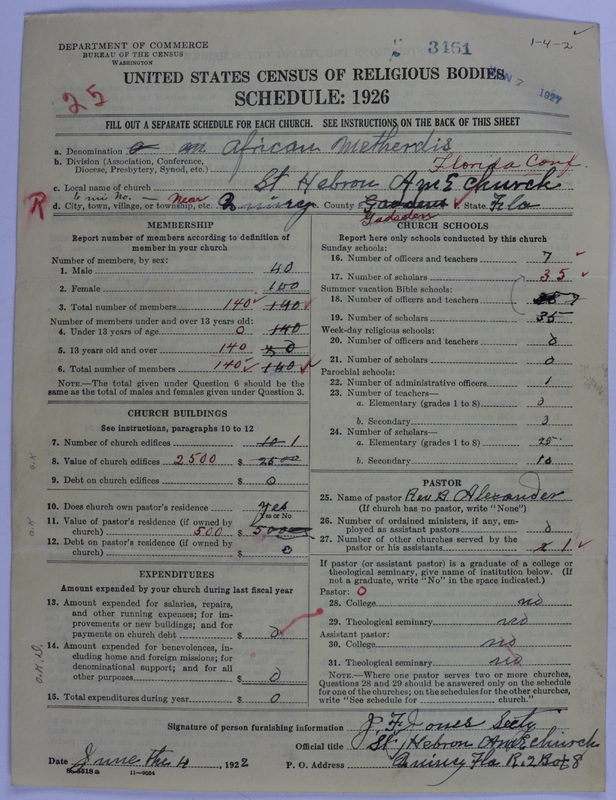 DEPARTMENT OF COMMERCE
BUREAU OF THE CENSUS
WASHINGTON
3461
1-4-2
25
UNITED STATES CENSUS OF RELIGIOUS BODIES
SCHEDULE: 1926
2 1927
FILL OUT A SEPARATE SCHEDULE FOR EACH CHURCH. SEE INSTRUCTIONS ON THE BACK OF THIS SHEET
a. Denomination an African Metherdis
b. Division (Association, Conference, Diocese, Presbytery, Synod, etc.) Florida Conf.
c. Local name of church St Hebron AmE church
R 6 mi No. — Near
d. City, town, village, or township, etc. Quincy County Gadsden State Fla
Gadsden
MEMBERSHIP
Report number of members according to definition of member in your church
Number of members, by sex:
1. Male 40
2. Female 100
3. Total number of members 140 140
Number of members under and over 13 years old:
4. Under 13 years of age 0 140
5. 13 years old and over 140
6. Total number of members 140 140
NOTE.—The total given under Question 6 should be the same as the total of males and females given under Question 3.
CHURCH BUILDINGS
See instructions, paragraphs 10 to 12
7. Number of church edifices 10 1
8. Value of church edifices 2500 $ 2500
9. Debt on church edifices $ 0
10. Does church own pastor's residence yes
Yes or No
11. Value of pastor's residence (if owned by church) 500 $ 5000
12. Debt on pastor's residence (if owned by church) $ 0
EXPENDITURES
Amount expended by your church during last fiscal year
13. Amount expended for salaries, repairs, and other running expenses; for improvements or new buildings; and for payments on church debt $ 0
14. Amount expended for benevolences, including home and foreign missions; for denominational support; and for all other purposes $ 0
15. Total expenditures during year $ 0
CHURCH SCHOOLS
Report here only schools conducted by this church
Sunday schools:
16. Number of officers and teachers 7
17. Number of scholars 35
Summer vacation Bible schools:
18. Number of officers and teachers 7
19. Number of scholars 35
Week-day religious schools:
20. Number of officers and teachers 0
21. Number of scholars 0
Parochial schools:
22. Number of administrative officers 1
23. Number of teachers—
a. Elementary (grades 1 to 8)
b. Secondary
24. Number of scholars—
a. Elementary (grades 1 to 8) 25
b. Secondary 10
PASTOR
25. Name of pastor Rev. B. Alexander
(If church has no pastor, write "None")
26. Number of ordained ministers, if any, employed as assistant pastors 0
27. Number of other churches served by the pastor or his assistants 2 1
If pastor (or assistant pastor) is a graduate of a college or theological seminary, give name of institution below. (If not a graduate, write "No" in the space indicated.)
Pastor: 0
28. College no
29. Theological seminary no
Assistant pastor:
30. College no
31. Theological seminary no
NOTE.—Where one pastor serves two or more churches, Questions 28 and 29 should be answered only on the schedule for one of the churches; on the schedules for the other churches, write "See schedule for ______ church."
Signature of person furnishing information J. F. Jones Secty
Official title St Hebron AmE church
Date June the 4, 1922 P. O. Address Quincy Fla R.2 Box 8
11—9954